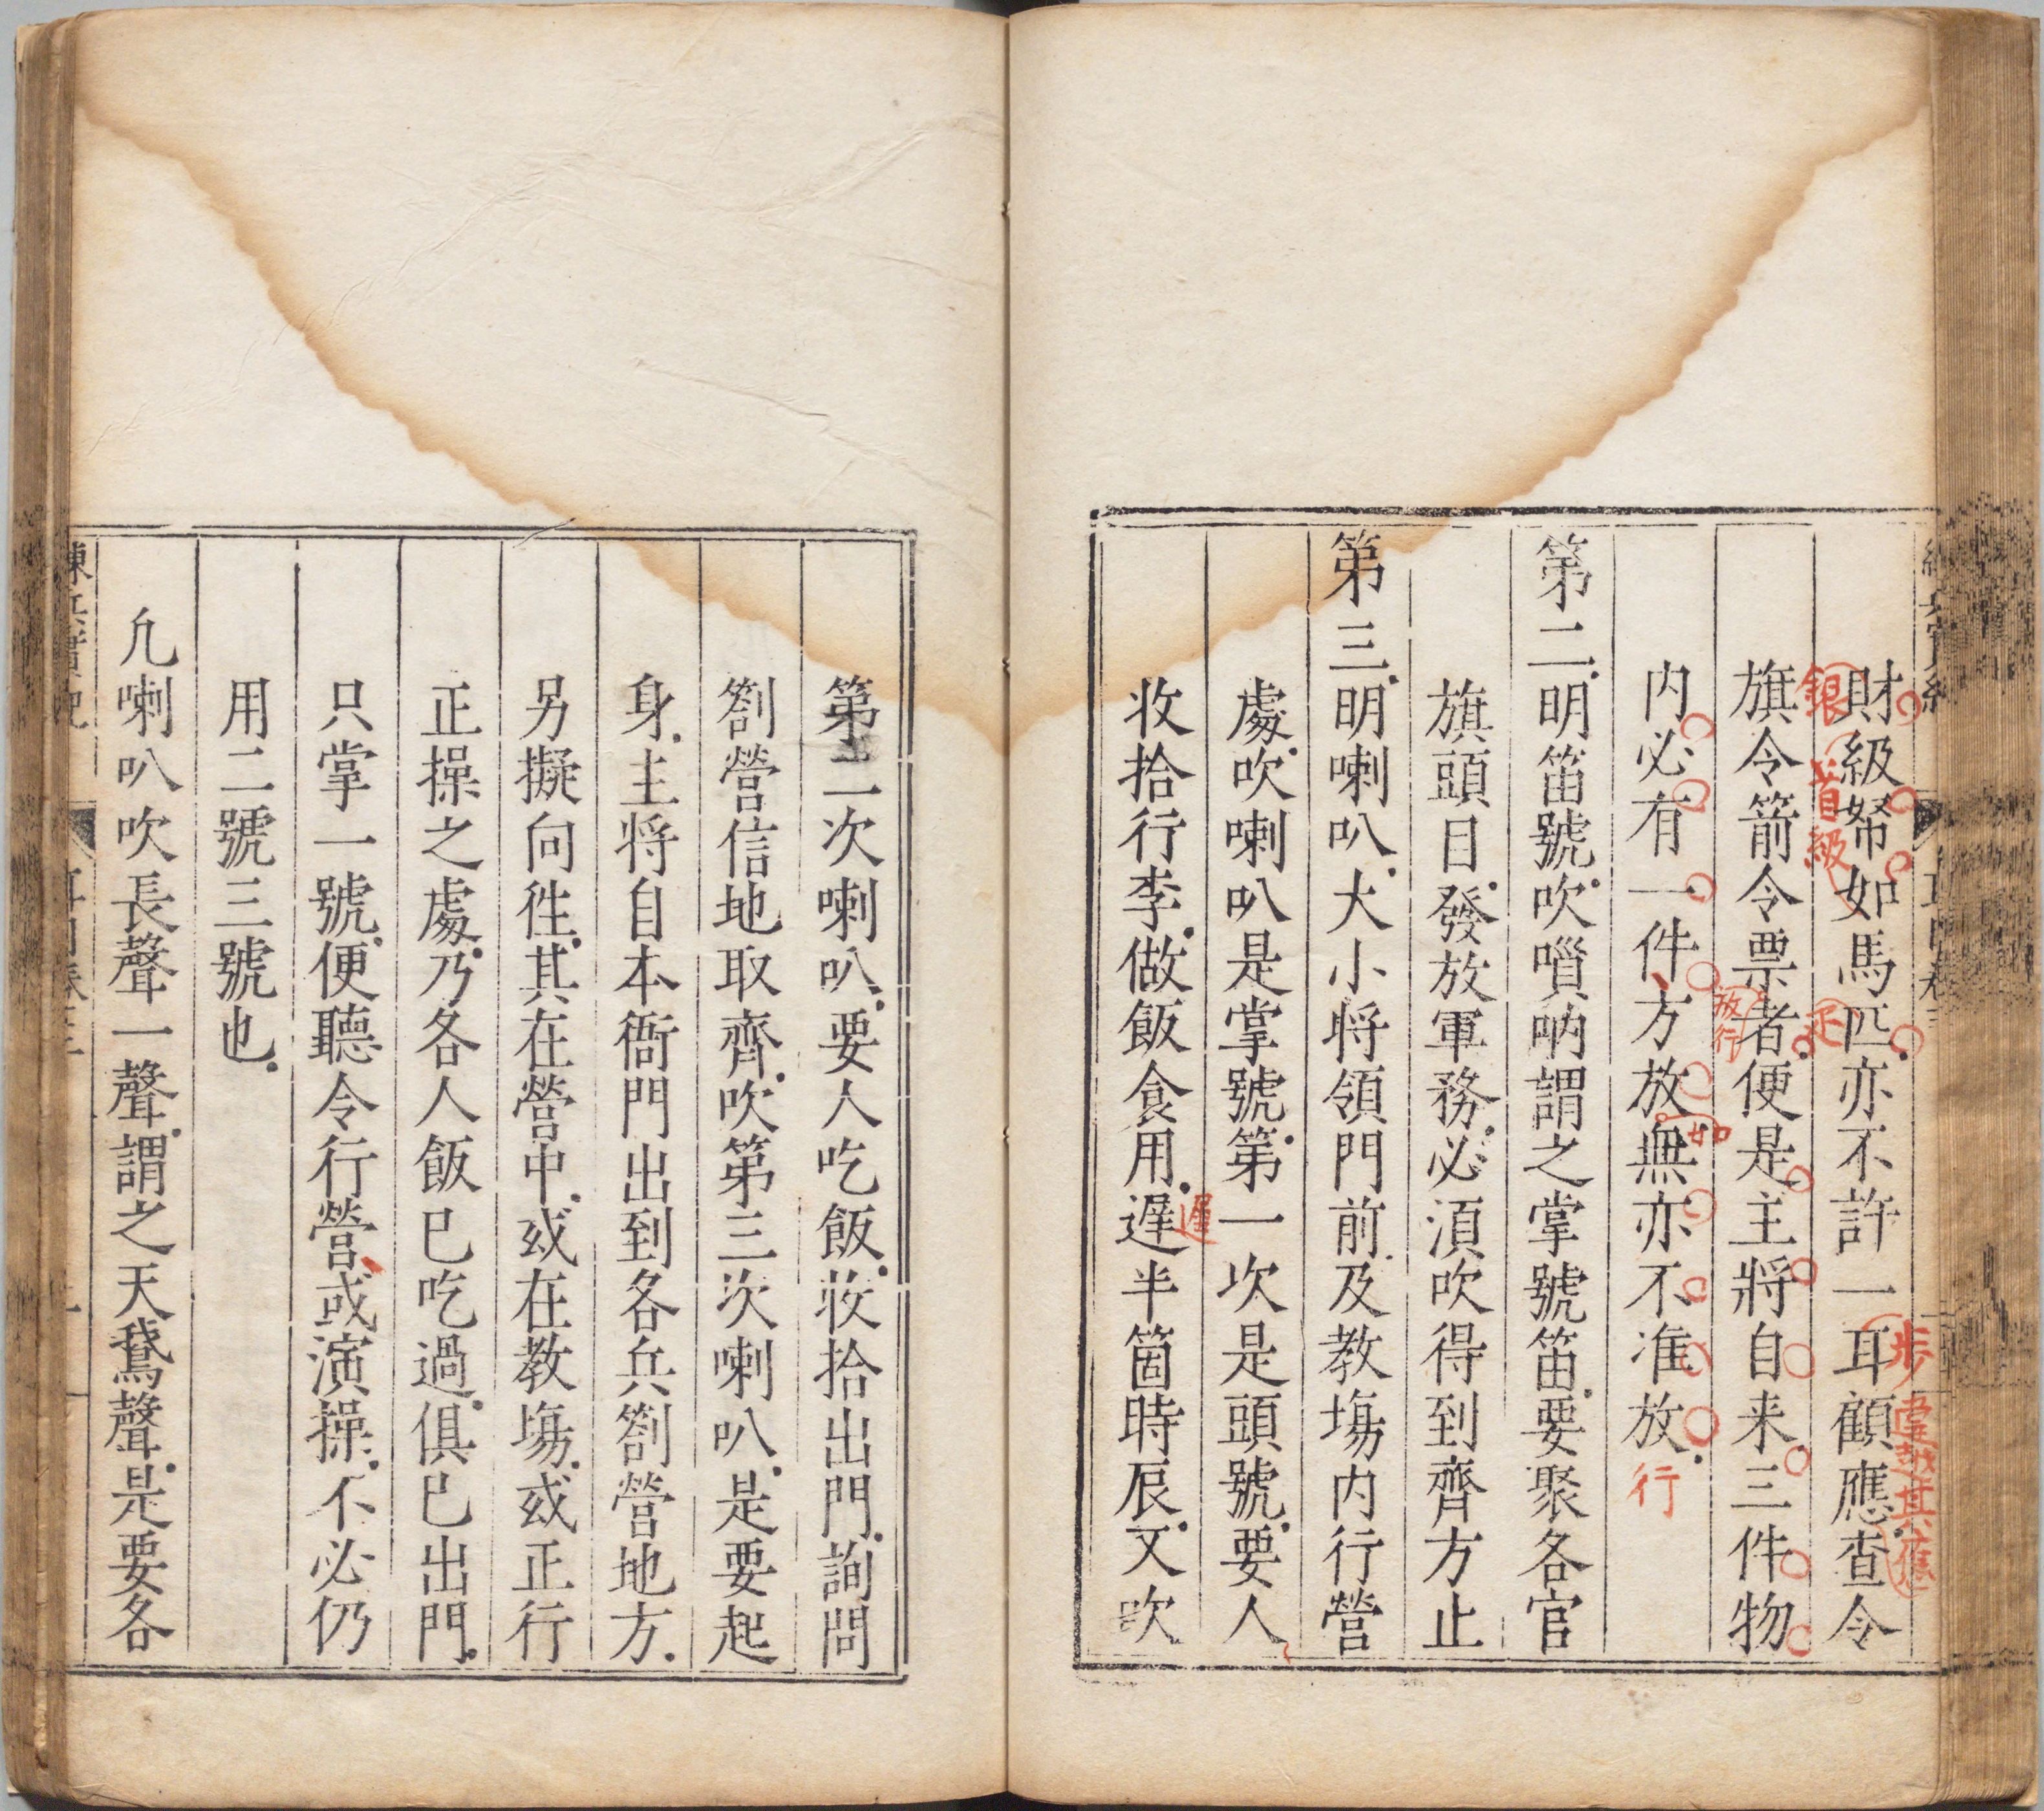 財級帑如馬匹亦不許一耳顧應查令
旗令箭令票者便是主將自来三件物
内必有一件方放無亦不准放
第二明笛號吹嗩吶謂之掌號笛要聚各官
旗頭目發放軍務必湏吹得到齊方止
第三明喇叭大小将領門前及教塲内行營
處吹喇叭是掌號第一次是頭號要人
收拾行李做飯食用遲半箇時辰又吹
銀
首級
疋
步
違越其應
放行
如
行
遲
第二次喇叭要人吃飯收拾出門詢問
劄營信地取齊吹第三次喇叭是要起
身主将自本衙門出到各兵劄營地方
另擬向徃其在營中或在教塲或正行
正操之處乃各人飯已吃過俱已出門
只掌一號便聽令行營或演操不必仍
用二號三號也
凢喇叭吹長聲一聲謂之天鵞聲是要各